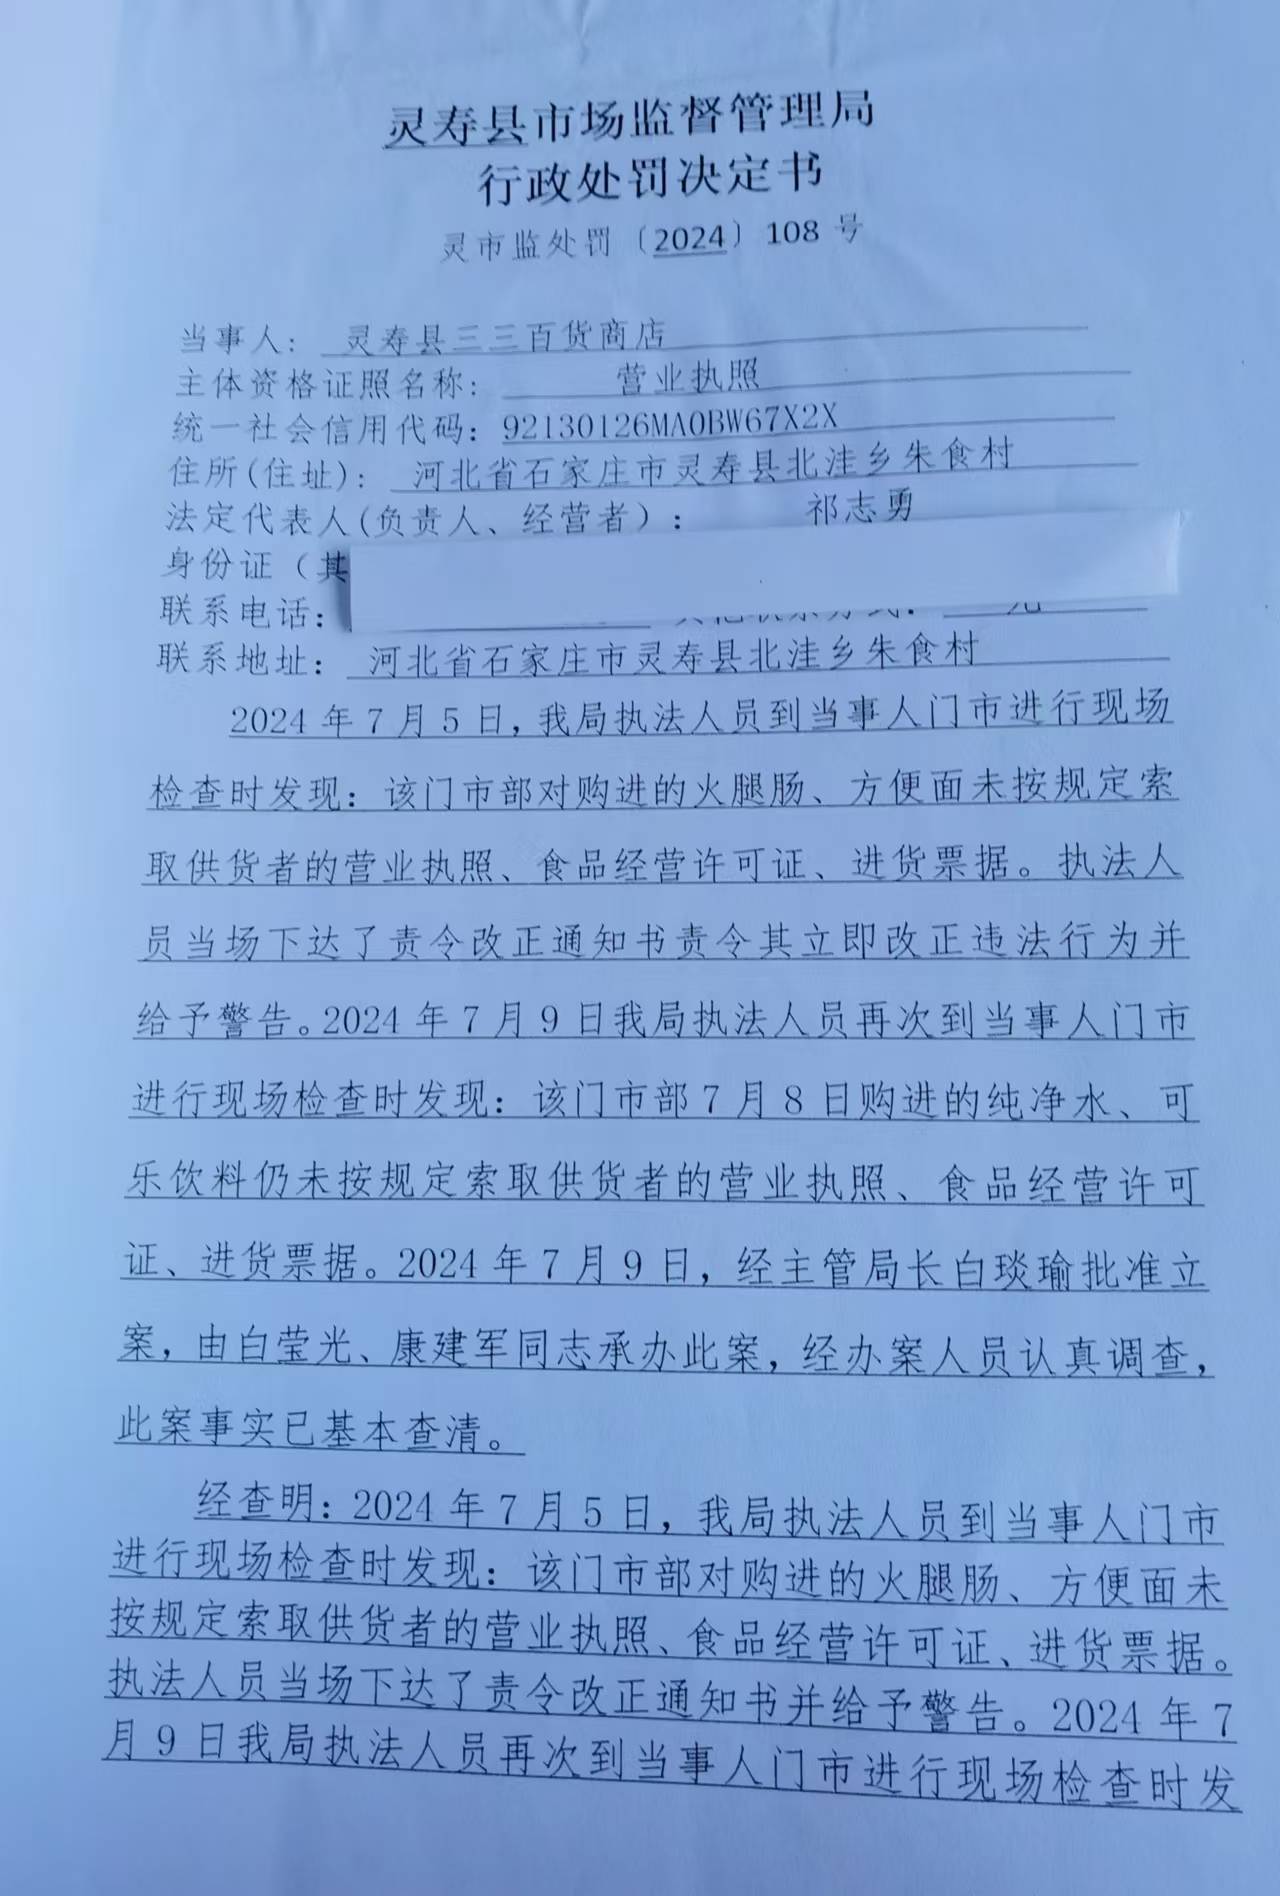 灵寿县市场监督管理局
行政处罚决定书
灵市监处罚〔2024〕108号
当事人: 灵寿县三三百货商店
主体资格证照名称: 营业执照
统一社会信用代码: 92130126MA0BW67X2X
住所(住址): 河北省石家庄市灵寿县北洼乡朱食村
法定代表人(负责人、经营者): 祁志勇
身份证（其
联系电话:
联系地址: 河北省石家庄市灵寿县北洼乡朱食村
2024年7月5日，我局执法人员到当事人门市进行现场
检查时发现：该门市部对购进的火腿肠、方便面未按规定索
取供货者的营业执照、食品经营许可证、进货票据。执法人
员当场下达了责令改正通知书责令其立即改正违法行为并
给予警告。2024年7月9日我局执法人员再次到当事人门市
进行现场检查时发现：该门市部7月8日购进的纯净水、可
乐饮料仍未按规定索取供货者的营业执照、食品经营许可
证、进货票据。2024年7月9日，经主管局长白琰瑜批准立
案，由白莹光、康建军同志承办此案，经办案人员认真调查，
此案事实已基本查清。
经查明：2024年7月5日，我局执法人员到当事人门市
进行现场检查时发现：该门市部对购进的火腿肠、方便面未
按规定索取供货者的营业执照、食品经营许可证、进货票据。
执法人员当场下达了责令改正通知书并给予警告。2024年7
月9日我局执法人员再次到当事人门市进行现场检查时发